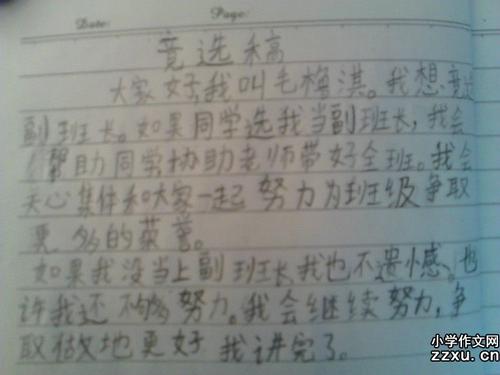 Date: Page:
竞选稿
大家好,我叫毛梅淇。我想竞选
副班长。如果同学选我当副班长,我会
帮助同学协助老师带好全班。我会
关心集体和大家一起努力为班级争取
更多的荣誉。
如果我没当上副班长,我也不遗憾。也
许我还不够努力。我会继续努力,争
取做地更好 我讲完了。
小学作文网
zzxu.cn